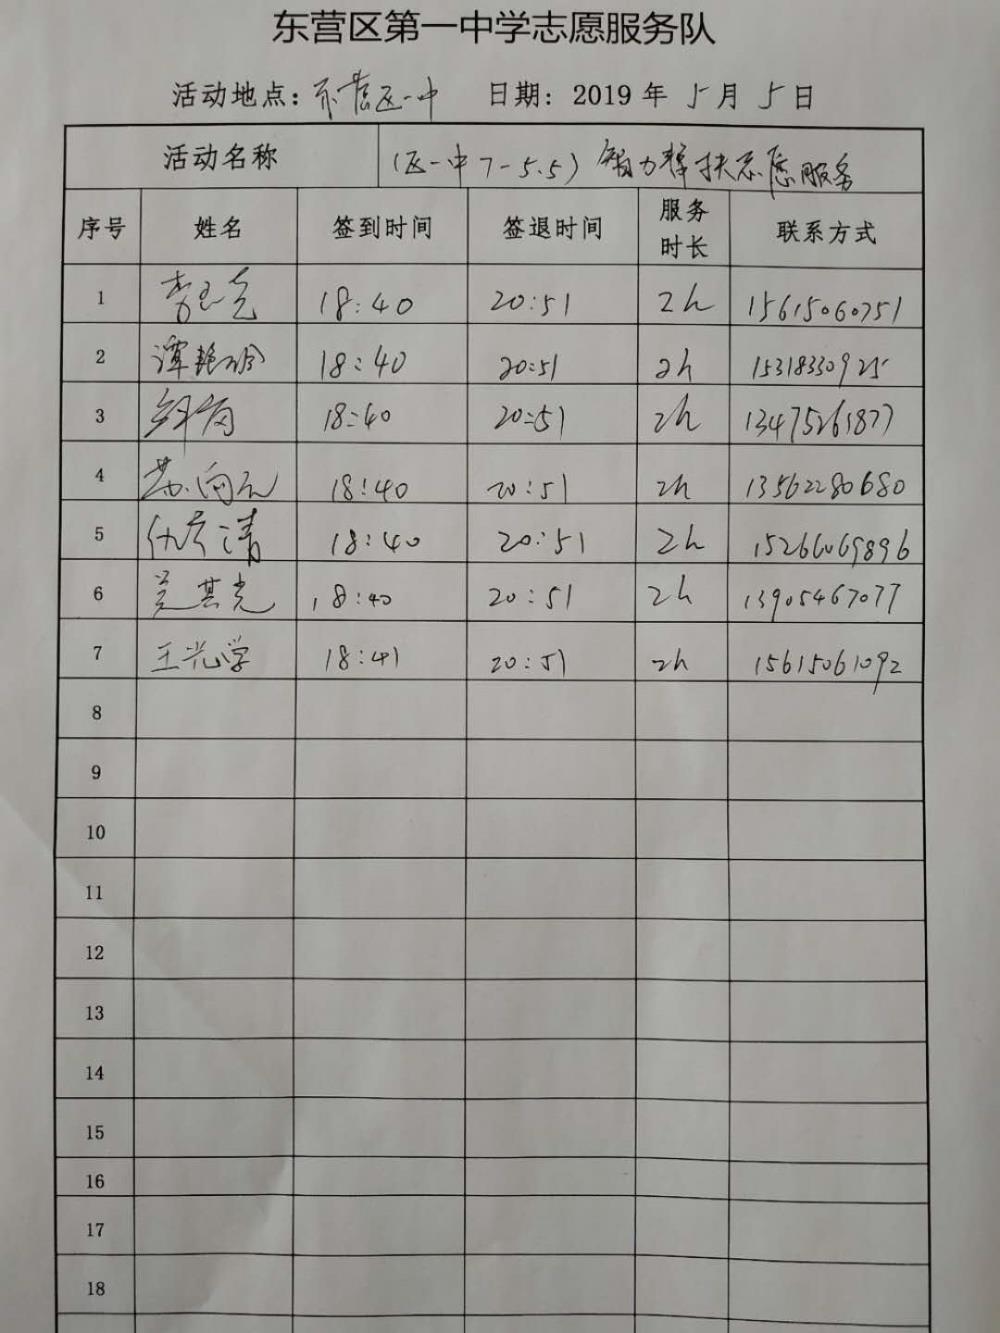 东营区第一中学志愿服务队
活动地点：东营区一中 日期：2019 年 5 月 5 日
活动名称 (区一中7-5.5) 智力帮扶志愿服务
序号 姓名 签到时间 签退时间 服务时长 联系方式
1 李玉亮 18:40 20:51 2h 15615060751
2 谭艳玲 18:40 20:51 2h 15318330925
3 18:40 20:51 2h 13475261877
4 苏向元 18:40 20:51 2h 13562280680
5 仇孝清 18:40 20:51 2h 15266069896
6 18:40 20:51 2h 13905467077
7 王光学 18:41 20:51 2h 15615061092
8
9
10
11
12
13
14
15
16
17
18